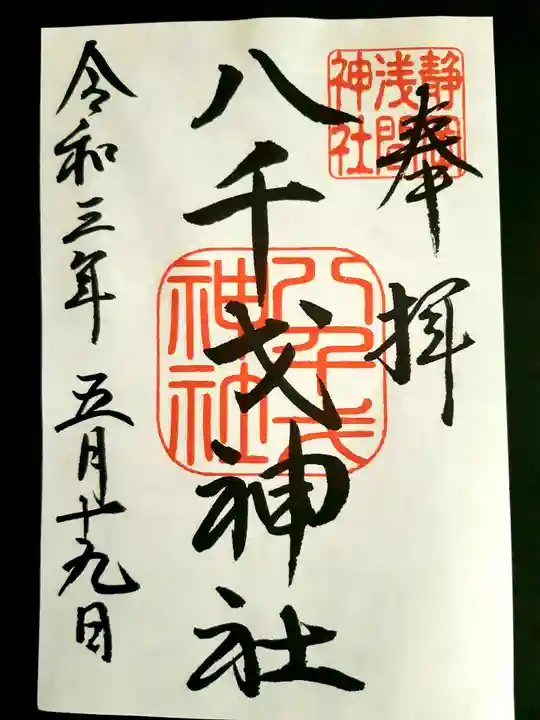 奉拝
静岡
浅間
神社
八千戈神社
八千戈
神社
令和三年五月十九日